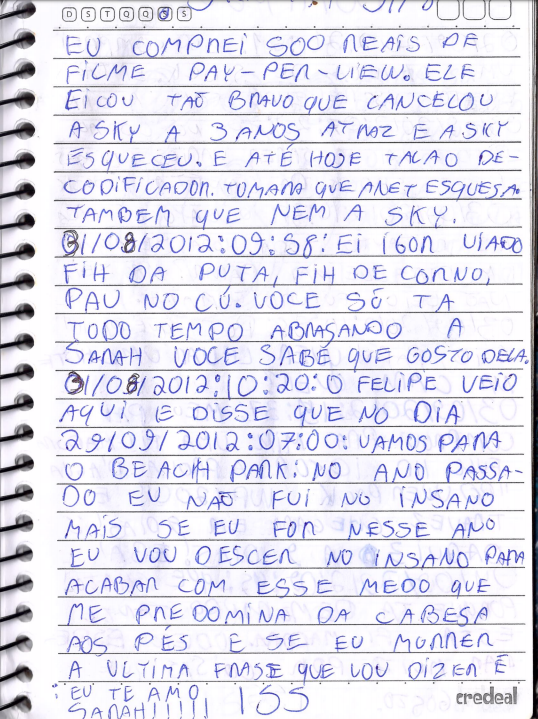 D S T Q Q S S
EU COMPREI 500 REAIS DE
FILME PAY-PER-VIEW. ELE
FICOU TAO BRAVO QUE CANCELOU
A SKY A 3 ANOS ATRAZ E A SKY
ESQUECEU. E ATÉ HOJE TALAO DE-
CODIFICADOR. TOMARA QUE ANET ESQUESA.
TAMBEM QUE NEM A SKY.
31/08/2012:09:58: EI IGOR VIADO
FIH DA PUTA, FIH DE CORNO,
PAU NO CÚ. VOCE SÓ TA
TODO TEMPO ABRASANDO A
SARAH VOCE SABE QUE GOSTO DELA.
31/08/2012:10:20: O FELIPE VEIO
AQUI E DISSE QUE NO DIA
29/09/2012:07:00: VAMOS PARA
O BEACH PARK: NO ANO PASSA-
DO EU NAO FUI NO INSANO
MAIS SE EU FOR NESSE ANO
EU VOU DESCER NO INSANO PARA
ACABAR COM ESSE MEDO QUE
ME PREDOMINA DA CABESA
AOS PÉS E SE EU MORRER
A ULTIMA FRASE QUE VOU DIZER É
: EU TE AMO
SARAH!!!!! 155
credeal